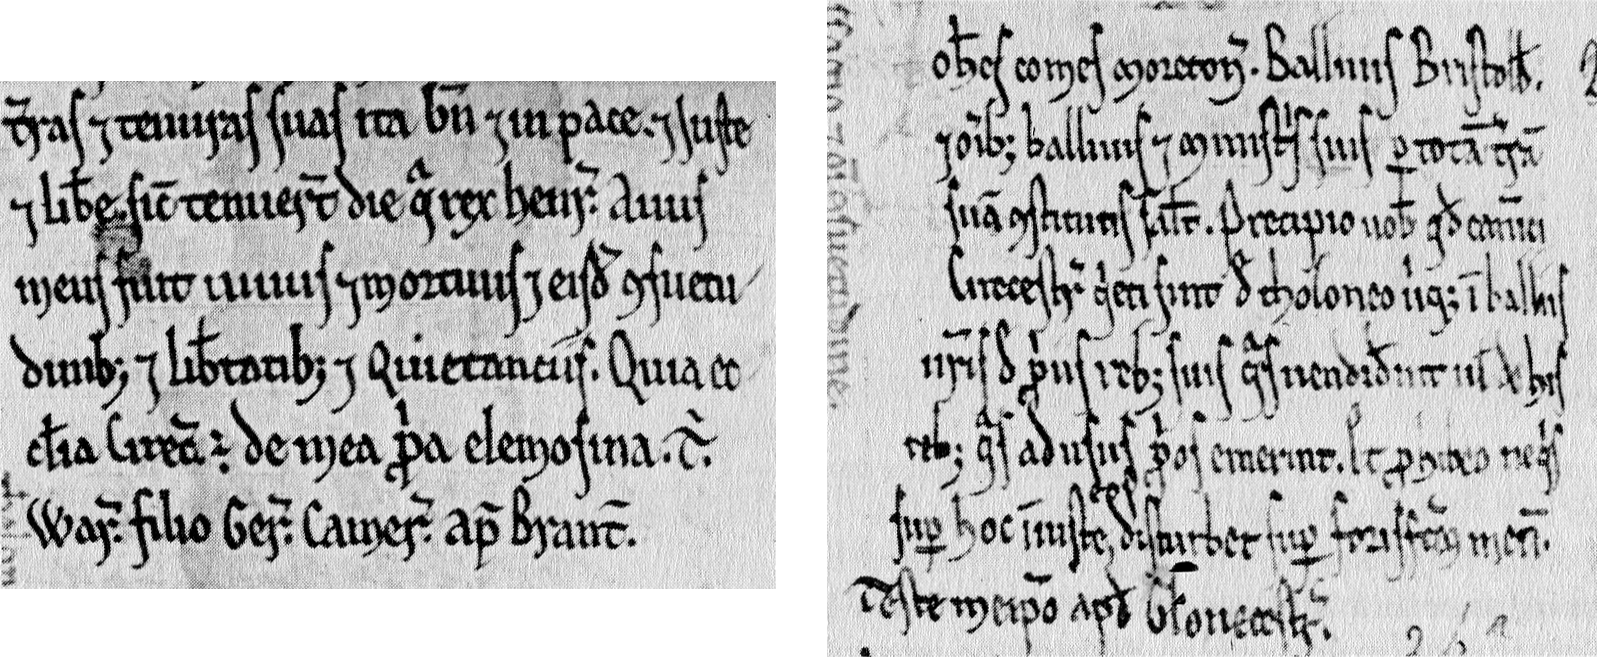 t̄ras ⁊ tenuras suas ita bn̄ ⁊ in pace. ⁊ iuste
⁊ lib̄e sic̄ tenuer̄t die qͣ rex henr̄. Auus
meus fuit uiuus ⁊ mortuus ⁊ eisd̄ ꝯsuetu
dinib; ⁊ lib̄tatib; ⁊ Quietanciis. Quia ec
cl̄ia Cirec̄ ē de mea pͥa elemosina. T̄.
War̄. filio Ger̄. Camer̄. ap̄ Brant̄.
oh̄es comes moreton̄. Balliuis Bristoll̄.
⁊ om̄ib; balliuis ⁊ minist̄s suis ꝑ totā t̄rā
suā ꝯstitutis sal̄t. Precipio uob̄ qd̄ canōici
Cirecestr̄ qͥeti sint d̄ tholoneo ubͥq; ī balliis
nr̄is d̄ ꝓpͥis reb; suis qͣs uendid̄int ul̄ de his
reb; qͣs ad usus ꝓpͥos emerint. Et ꝓhibeo ne qͥs
suꝑ hoc iniuste eos disturbet suꝑ forisfc̄am meā.
Teste me ip̄o apd̄ Gl̄oucestr̄.